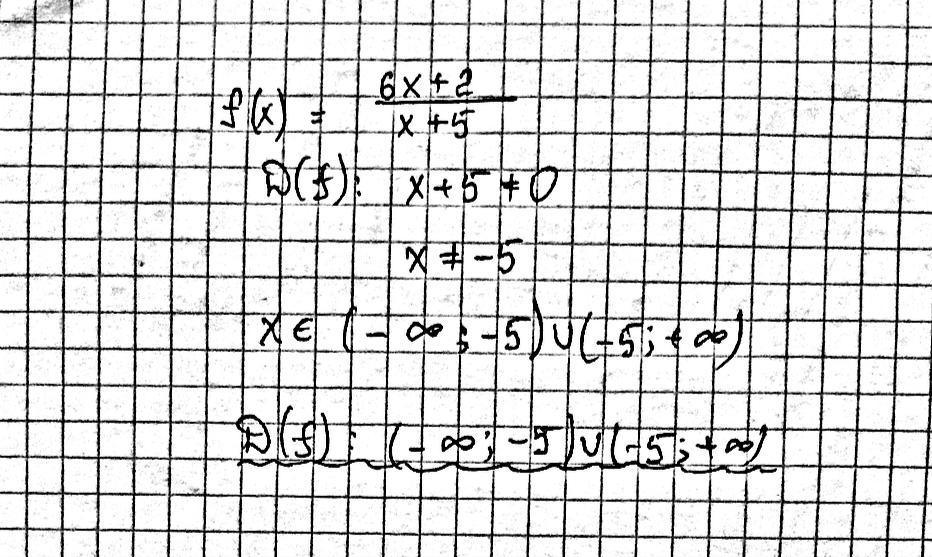 f(x) = (6x+2)/(x+5)
D(f): x+5≠0
x≠-5
x∈ (-∞;-5)∪(-5;+∞)
D(f): (-∞;-5)∪(-5;+∞)